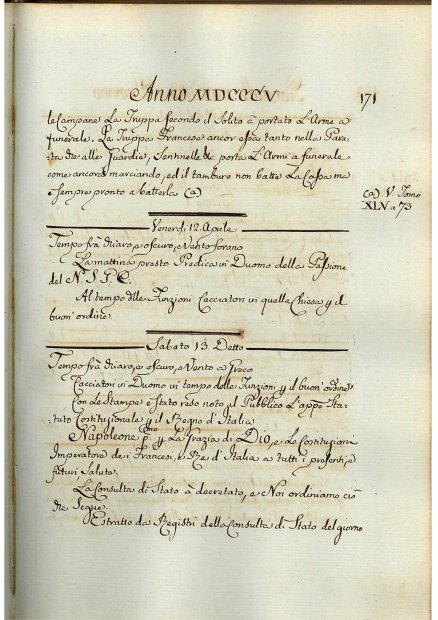 Anno MDCCCV
171
le Campane. La Truppa secondo il Solito à portato L'Arme a
funerale. La Truppa Francese ancor essa tanto nella Para
ta che alle Guardie, Sentinelle &c porta L'Armi a funerale
come ancora marciando, ed il tamburo non batte La Cassa ma
è sempre pronto a batterla (a)
(a) V Tomo
XLV a 73
Venerdi 12 Aprile
Tempo frà chiaro, e oscuro, e Vento forano
La mattina presto Predica in Duomo della Passione
del N. S. G. C.
Al tempo delle Funzioni Cacciatori in quella Chiesa y il
buon' ordine.
Sabato 13 Detto
Tempo frà chiaro, e oscuro, e Vento a Greco
Cacciatori in Duomo in tempo delle Funzioni y il buon' ordine
Con le Stampe è stato reso noto al Pubblico L'app.º Sta-
tuto Costituzionale y il Regno d'Italia
Napoleone p.mo y La Grazia di Dio, e Le Costituzioni
Imperatore de i Francesi, e Re d'Italia a tutti i presenti, e
futuri Salute.
La Consulta di Stato à decretato, e Noi ordiniamo ciò
che Segue.
Estratto da Registri della Consulta di Stato del giorno